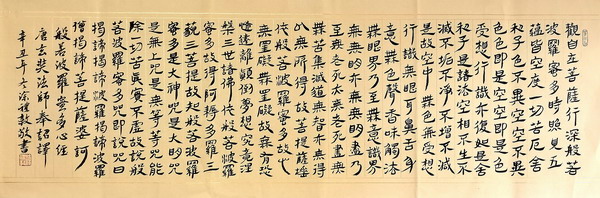 觀自在菩薩行深般若
波羅蜜多時照見五
蘊皆空度一切苦厄舍
利子色不異空空不異
色色即是空空即是色
受想行識亦復如是舍
利子是諸法空相不生不
滅不垢不淨不增不減
是故空中無色無受想
行識無眼耳鼻舌身
意無色聲香味觸法
無眼界乃至無意識界
無無明亦無無明盡乃
至無老死亦無老死盡
無苦集滅道無智亦無得
以無所得故菩提薩埵
依般若波羅蜜多故心
無罣礙無罣礙故無有恐
怖遠離顛倒夢想究竟涅
槃三世諸佛依般若波羅
蜜多故得阿耨多羅三
藐三菩提故知般若波羅
蜜多是大神咒是大明咒
是無上咒是無等等咒能
除一切苦真實不虛故說般
若波羅蜜多咒即說咒曰
揭諦揭諦波羅揭諦波羅
僧揭諦菩提薩婆訶
般若波羅蜜多心經
唐玄奘法師奉詔譯
辛丑年冬敬書